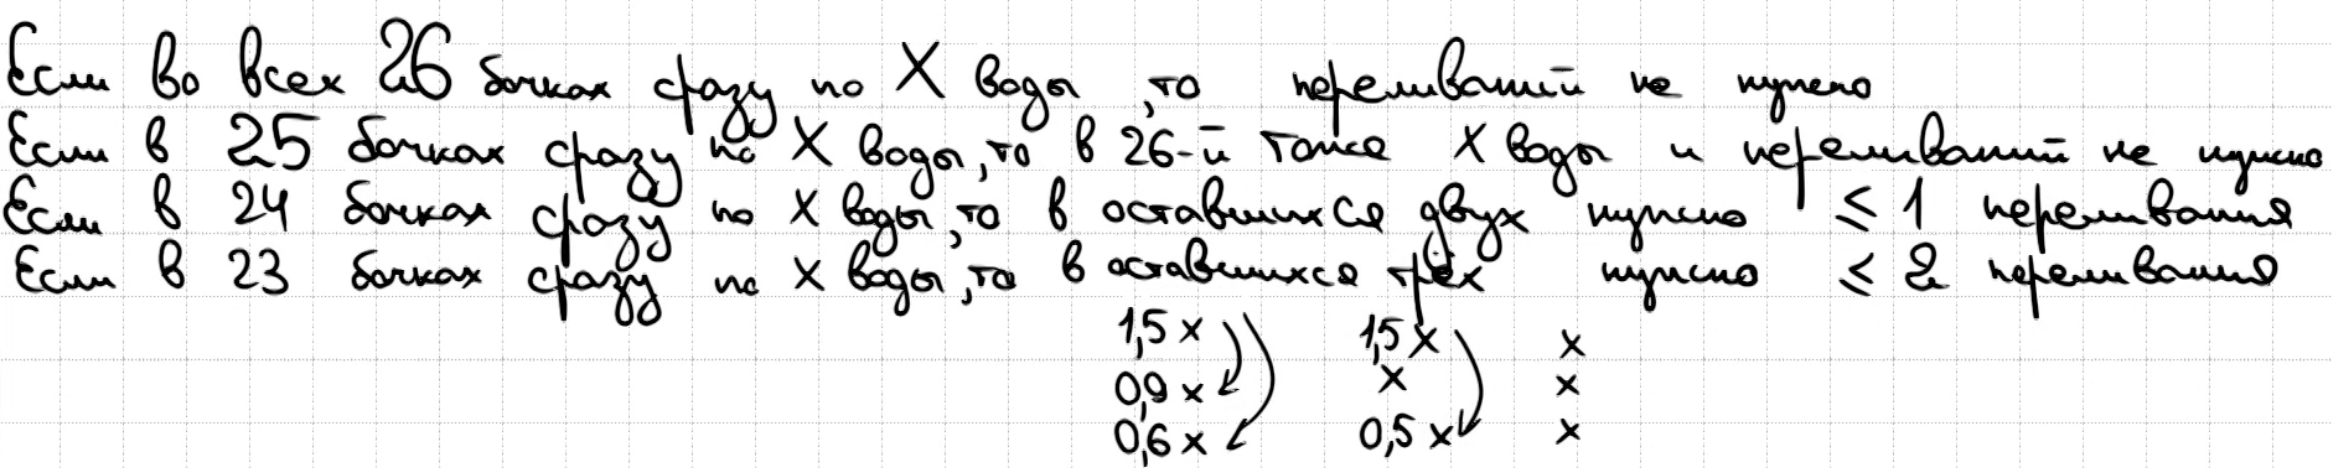 Если во всех 26 бочках сразу по X воды, то переливаний не нужно
Если в 25 бочках сразу по X воды, то в 26-й тоже X воды и переливаний не нужно
Если в 24 бочках сразу по X воды, то в оставшихся двух нужно ≤ 1 переливания
Если в 23 бочках сразу по X воды, то в оставшихся трёх нужно ≤ 2 переливания
1,5 x 1,5 x x
0,9 x x x
0,6 x 0,5 x x